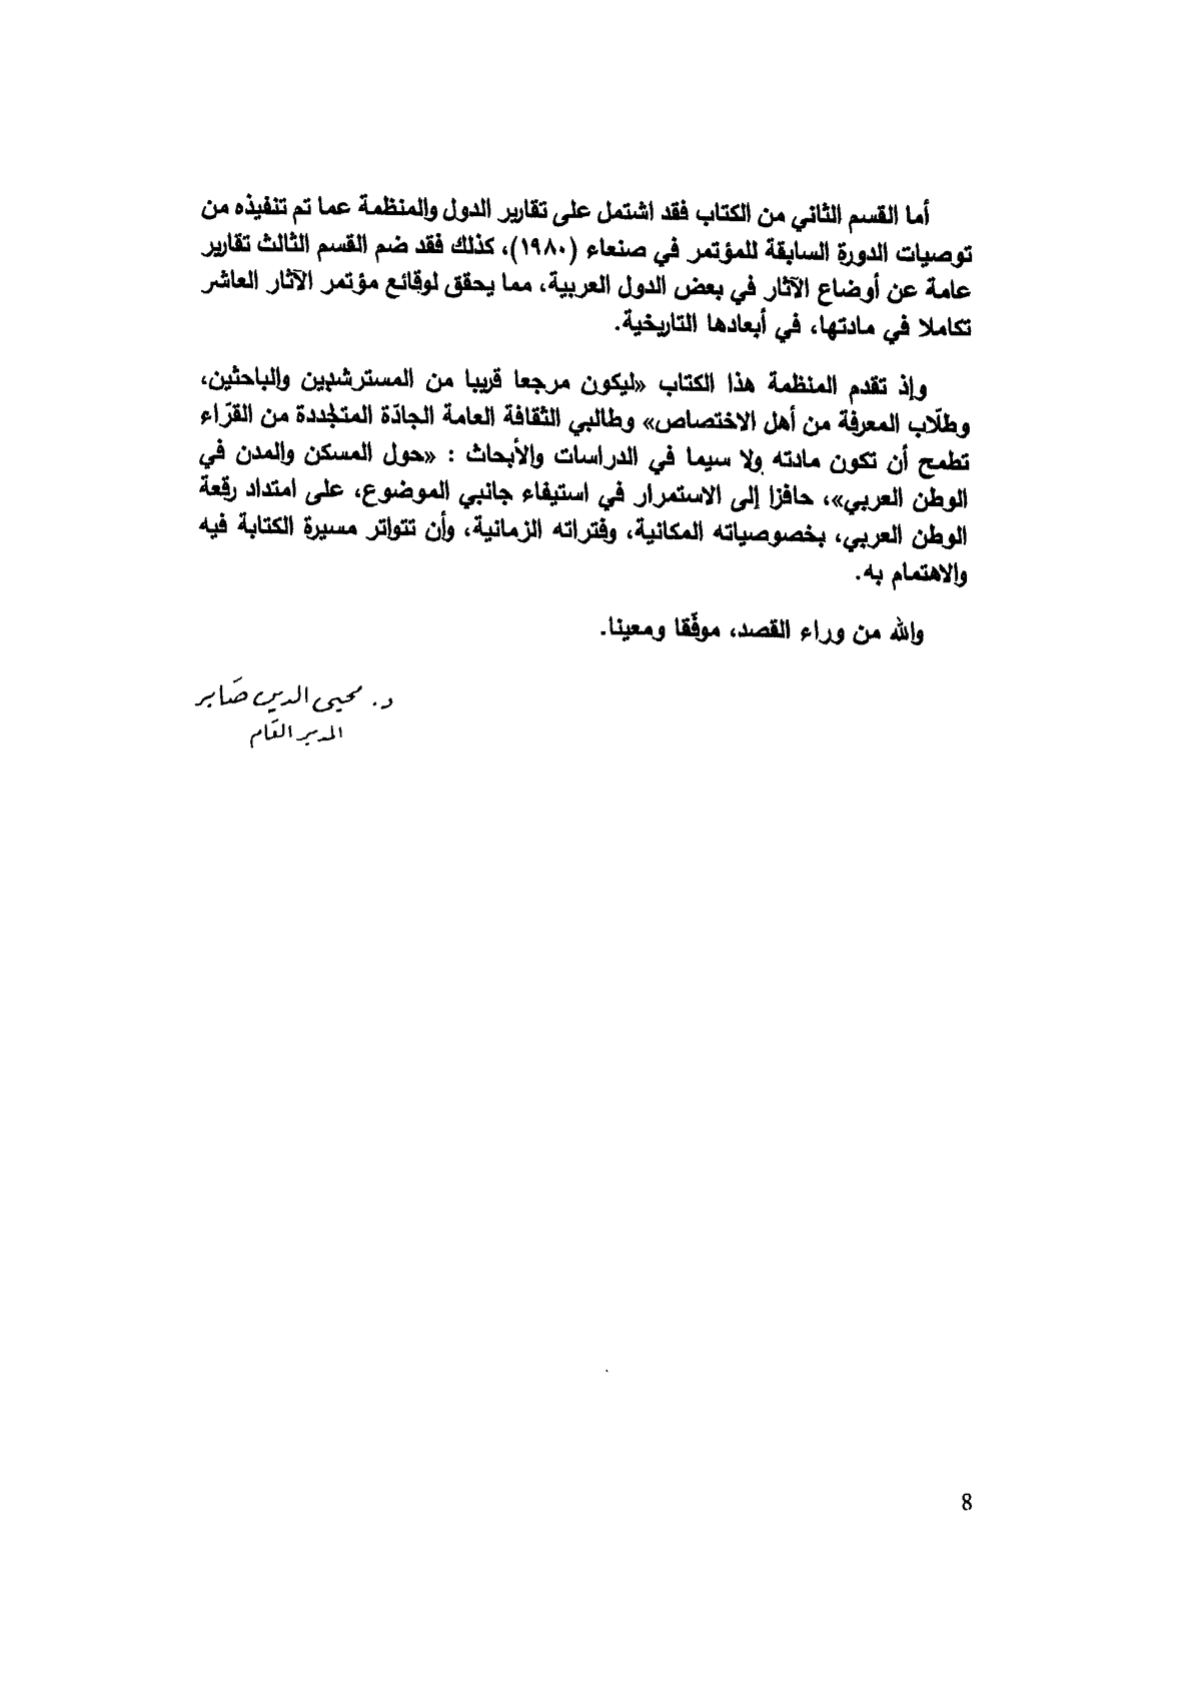 أما القسم الثاني من الكتاب فقد اشتمل على تقارير الدول والمنظمة عما تم تنفيذه من
توصيات الدورة السابقة للمؤتمر في صنعاء (١٩٨٠)، كذلك فقد ضم القسم الثالث تقارير
عامة عن أوضاع الآثار في بعض الدول العربية، مما يحقق لوقائع مؤتمر الآثار العاشر
تكاملا في مادتها، في أبعادها التاريخية.
وإذ تقدم المنظمة هذا الكتاب «ليكون مرجعا قريبا من المسترشدين والباحثين،
وطلّاب المعرفة من أهل الاختصاص» وطالبي الثقافة العامة الجادّة المتجددة من القرّاء
تطمح أن تكون مادته ولا سيما في الدراسات والأبحاث : «حول المسكن والمدن في
الوطن العربي»، حافزا إلى الاستمرار في استيفاء جانبي الموضوع، على امتداد رقعة
الوطن العربي، بخصوصياته المكانية، وفتراته الزمانية، وأن تتواتر مسيرة الكتابة فيه
والاهتمام به.
والله من وراء القصد، موفّقا ومعينا.
د. محيي الدين صابر
المدير العام
8